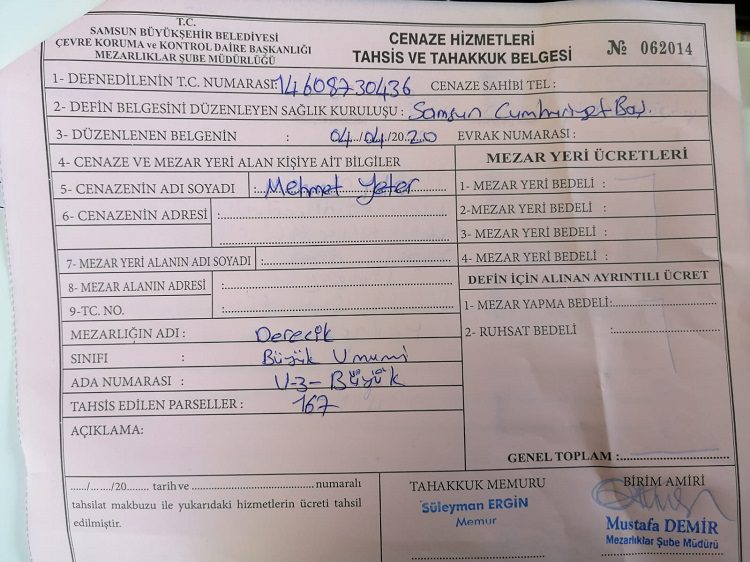 T.C.
SAMSUN BÜYÜKŞEHİR BELEDİYESİ
ÇEVRE KORUMA ve KONTROL DAİRE BAŞKANLIĞI
MEZARLIKLAR ŞUBE MÜDÜRLÜĞÜ
CENAZE HİZMETLERİ
TAHSİS VE TAHAKKUK BELGESİ
№ 062014
1- DEFNEDİLENİN T.C. NUMARASI: 14608730436 CENAZE SAHİBİ TEL :
2- DEFİN BELGESİNİ DÜZENLEYEN SAĞLIK KURULUŞU : Samsun Cumhuriyet Baş.
3- DÜZENLENEN BELGENİN : 04../04/20.20 EVRAK NUMARASI :
4- CENAZE VE MEZAR YERİ ALAN KİŞİYE AİT BİLGİLER
5- CENAZENİN ADI SOYADI : Mehmet Yeter
6- CENAZENİN ADRESİ :
7- MEZAR YERİ ALANIN ADI SOYADI :
8- MEZAR ALANIN ADRESİ :
9-TC. NO. :
MEZARLIĞIN ADI : Derecik
SINIFI : Büyük Umumi
ADA NUMARASI : U-3-Büyük
TAHSİS EDİLEN PARSELLER : 167
AÇIKLAMA:
MEZAR YERİ ÜCRETLERİ
1- MEZAR YERİ BEDELİ :
2-MEZAR YERİ BEDELİ :
3- MEZAR YERİ BEDELİ :
4- MEZAR YERİ BEDELİ :
DEFİN İÇİN ALINAN AYRINTILI ÜCRET
1- MEZAR YAPMA BEDELİ:
2- RUHSAT BEDELİ :
GENEL TOPLAM :
...../...../20........ tarih ve ........................ numaralı
tahsilat makbuzu ile yukarıdaki hizmetlerin ücreti tahsil
edilmiştir.
TAHAKKUK MEMURU
Süleyman ERGİN
Memur
BİRİM AMİRİ
Mustafa DEMİR
Mezarlıklar Şube Müdürü